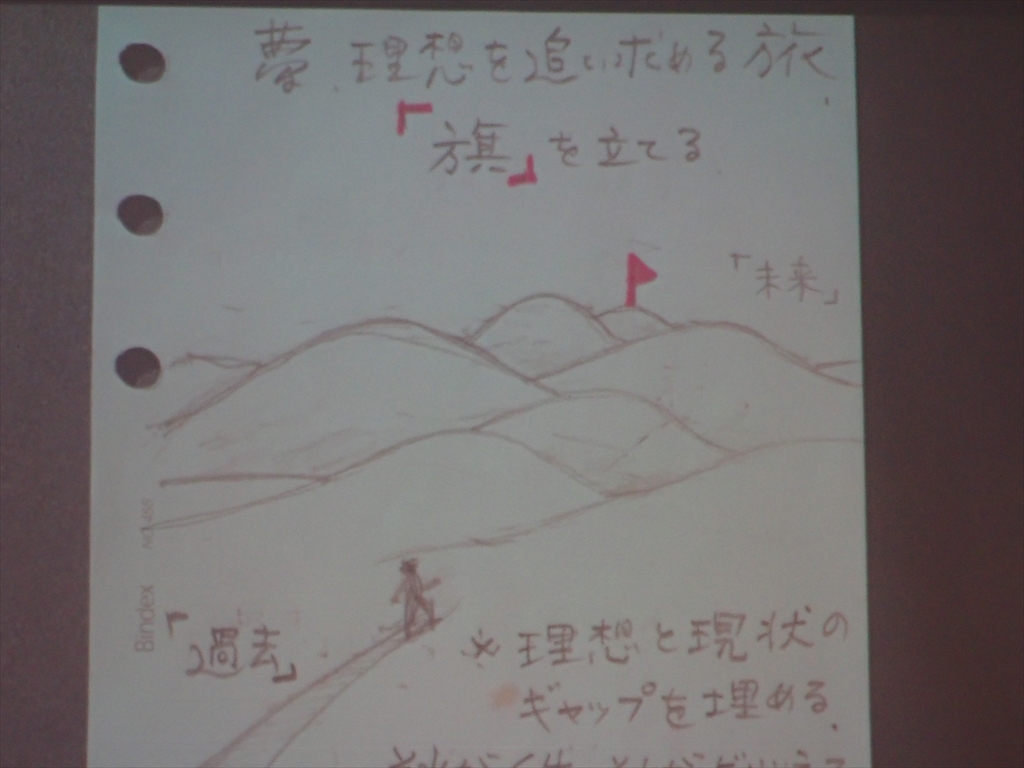 夢、理想を追い求める旅.
「旗」を立てる
「未来」
Bindex
「過去」
※理想と現状の
ギャップを埋める.